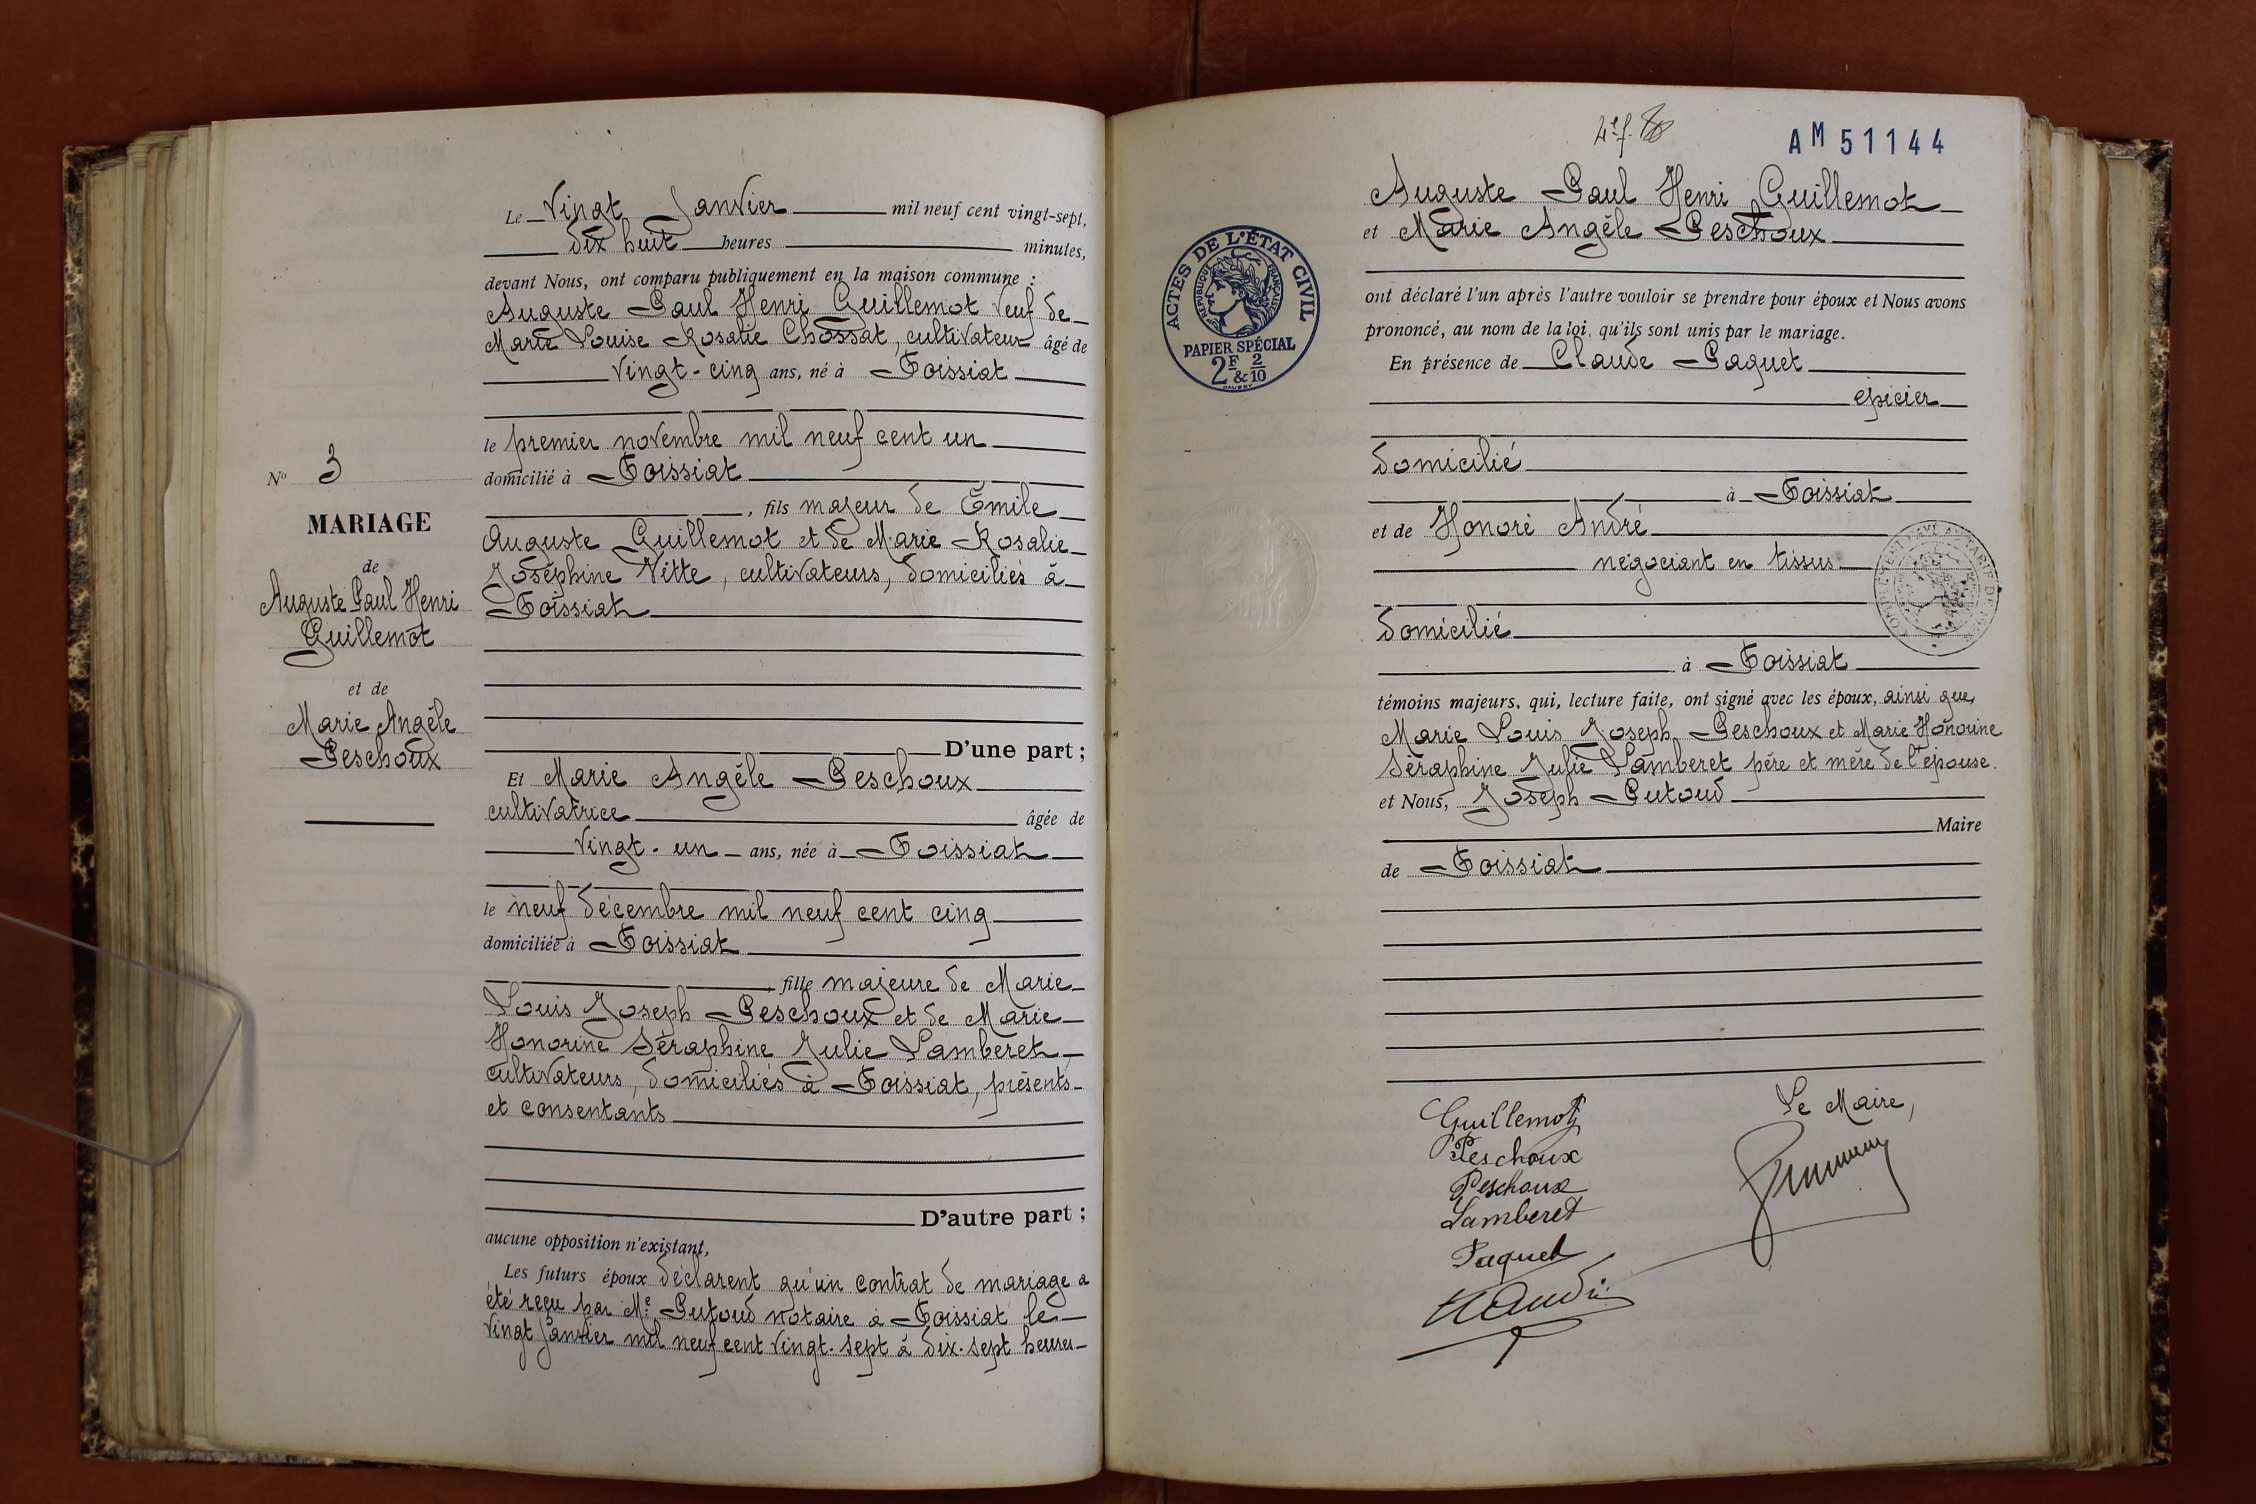 Le Vingt Janvier mil neuf cent vingt-sept,
dix huit heures minutes,
devant Nous, ont comparu publiquement en la maison commune :
Auguste Paul Henri Guillemot veuf de
Marie Louise Rosalie Chossat, cultivateur âgé de
vingt-cinq ans, né à Foissiat
le premier novembre mil neuf cent un
domicilié à Foissiat
, fils majeur de Émile
Auguste Guillemot et de Marie Rosalie
Joséphine Vitte, cultivateurs, domiciliés à
Foissiat
D'une part ;
Et Marie Angèle Peschoux
cultivatrice âgée de
vingt-un ans, née à Foissiat
le neuf décembre mil neuf cent cinq
domiciliée à Foissiat
, fille majeure de Marie
Louis Joseph Peschoux et de Marie
Honorine Séraphine Julie Lamberet
cultivateurs, domiciliés à Foissiat, présents
et consentants
D'autre part ;
aucune opposition n'existant,
Les futurs époux déclarent qu'un contrat de mariage a
été reçu par Me Putoud notaire à Foissiat le
vingt janvier mil neuf cent vingt-sept à dix-sept heures
No 3
MARIAGE
de
Auguste Paul Henri
Guillemot
et de
Marie Angèle
Peschoux
AM 51144
Auguste Paul Henri Guillemot
et Marie Angèle Peschoux
ont déclaré l'un après l'autre vouloir se prendre pour époux et Nous avons
prononcé, au nom de la loi, qu'ils sont unis par le mariage.
En présence de Claude Paquet
épicier
domicilié
à Foissiat
et de Honoré André
négociant en tissus
domicilié
à Foissiat
témoins majeurs, qui, lecture faite, ont signé avec les époux, ainsi que
Marie Louis Joseph Peschoux et Marie Honorine
Séraphine Julie Lamberet père et mère de l'épouse.
et Nous, Joseph Putoud
Maire
de Foissiat
Guillemot
Peschoux
Peschoux
Lamberet
Paquet
Le Maire,
ACTES DE L'ÉTAT CIVIL
RÉPUBLIQUE FRANÇAISE
PAPIER SPÉCIAL
2F & 2/10